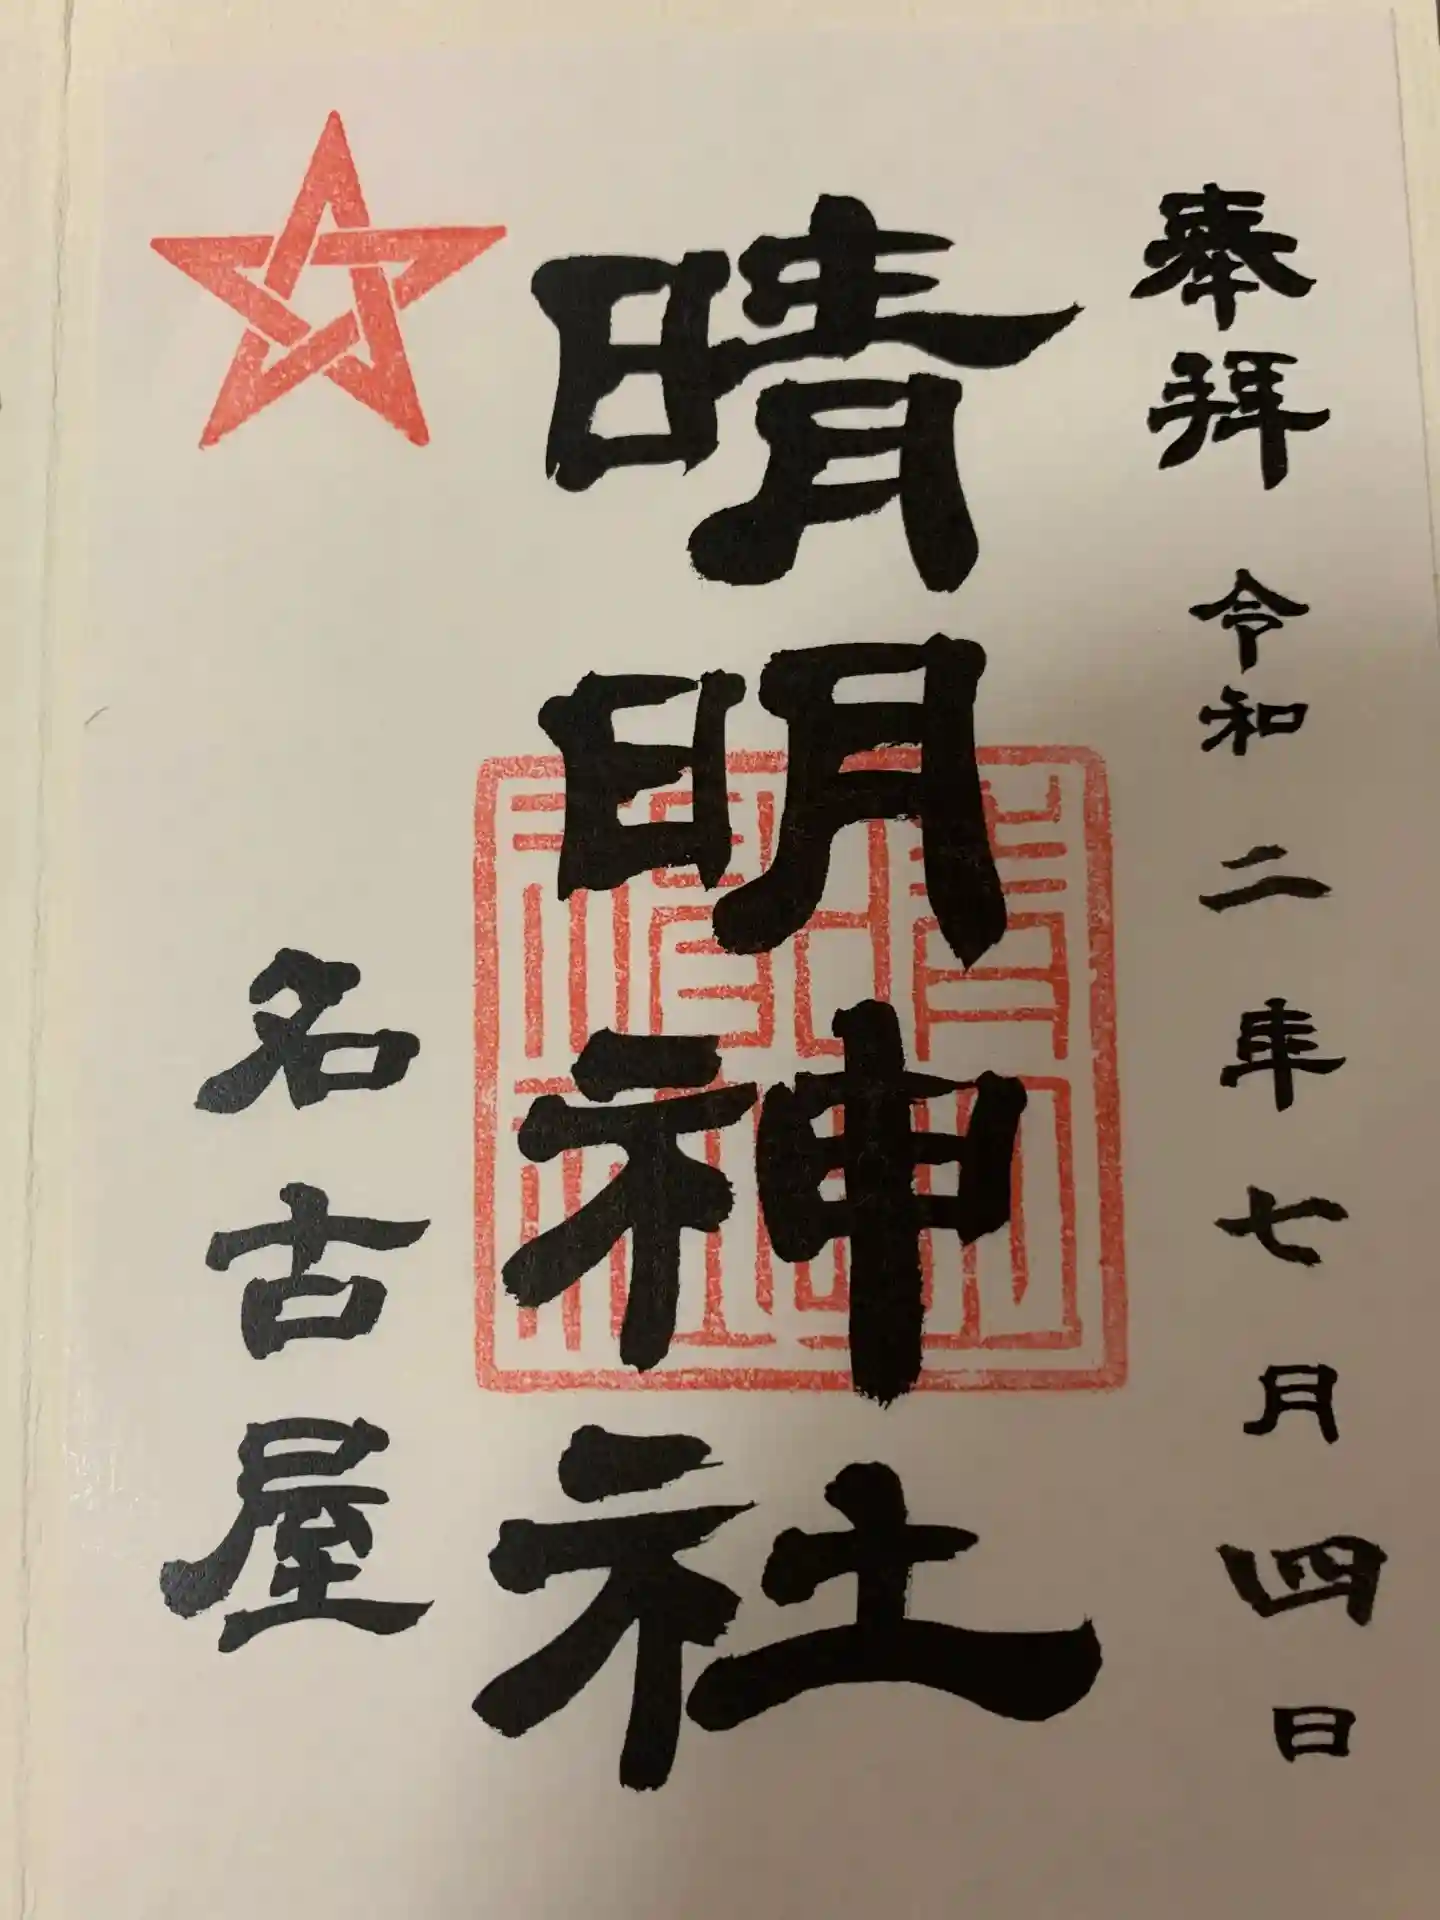 奉拜 令和二年七月四日
晴明神社
名古屋